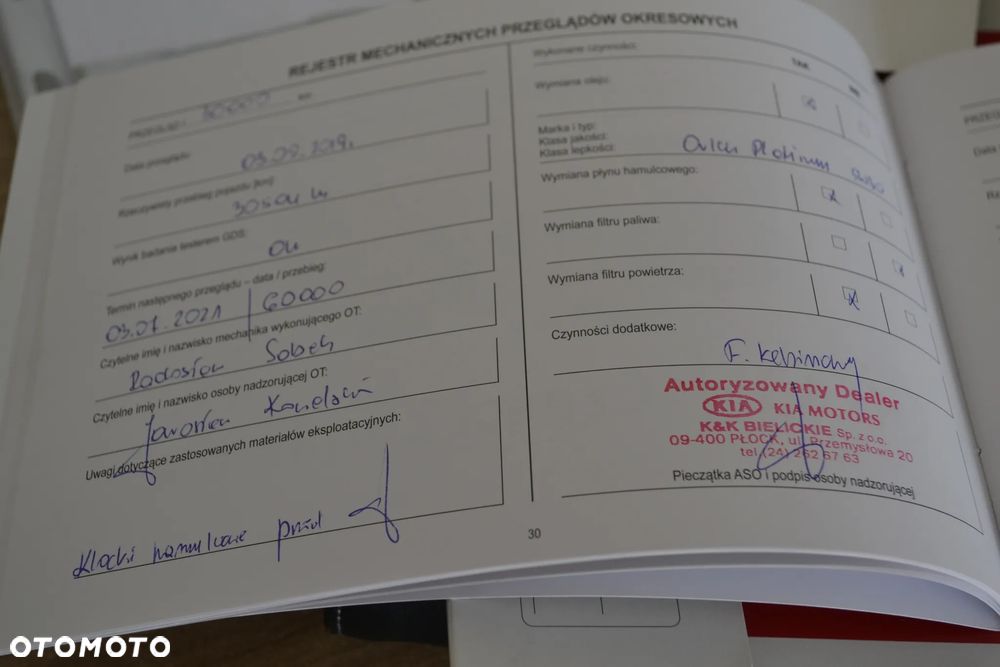 REJESTR MECHANICZNYCH PRZEGLĄDÓW OKRESOWYCH
PRZEGLĄD I 30000 km
Data przeglądu:
03.09.2019r.
Rzeczywisty przebieg pojazdu [km]:
Wynik badania testerem GDS:
Termin następnego przeglądu – data / przebieg:
03.07.2021 60000
Czytelne imię i nazwisko mechanika wykonującego OT:
Radosław Sobek
Czytelne imię i nazwisko osoby nadzorującej OT:
Jarosław
Uwagi dotyczące zastosowanych materiałów eksploatacyjnych:
Klocki hamulcowe przód
Wykonane czynności:
TAK
NIE
Wymiana oleju:
Marka i typ:
Klasa jakości:
Klasa lepkości:
Orlen Platinum
Wymiana płynu hamulcowego:
Wymiana filtru paliwa:
Wymiana filtru powietrza:
Czynności dodatkowe:
F. kabinowy
Autoryzowany Dealer
KIA KIA MOTORS
K&K BIELICKIE Sp. z o.o.
09-400 PŁOCK, ul. Przemysłowa 20
tel. (24) 262 67 63
Pieczątka ASO i podpis osoby nadzorującej
30
OTOMOTO